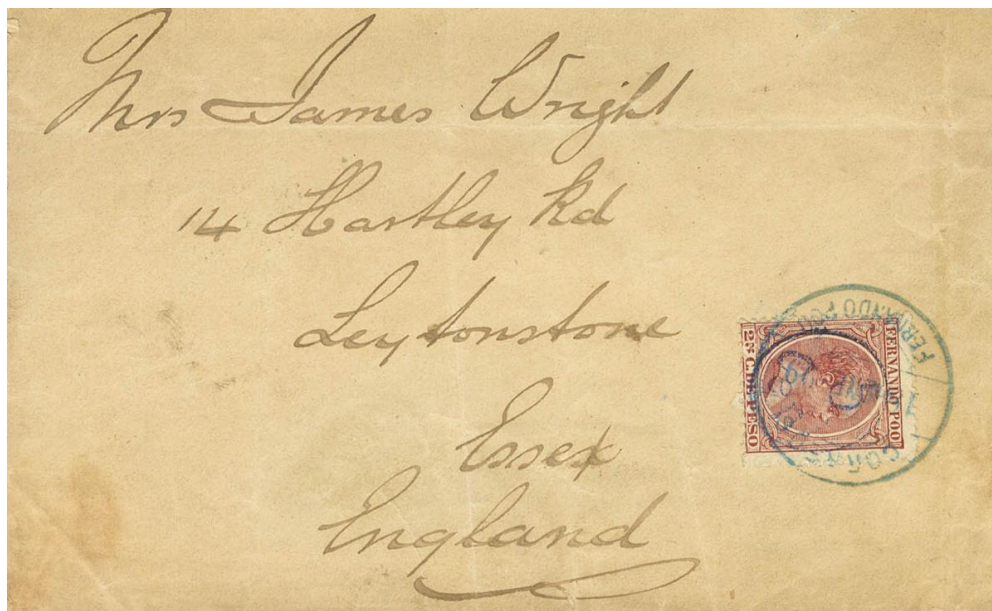 Mrs James Wright
14 Hartley Rd
Leytonstone
Essex
England
FERNANDO POO
2 C. DE PESO
FERNANDO POO